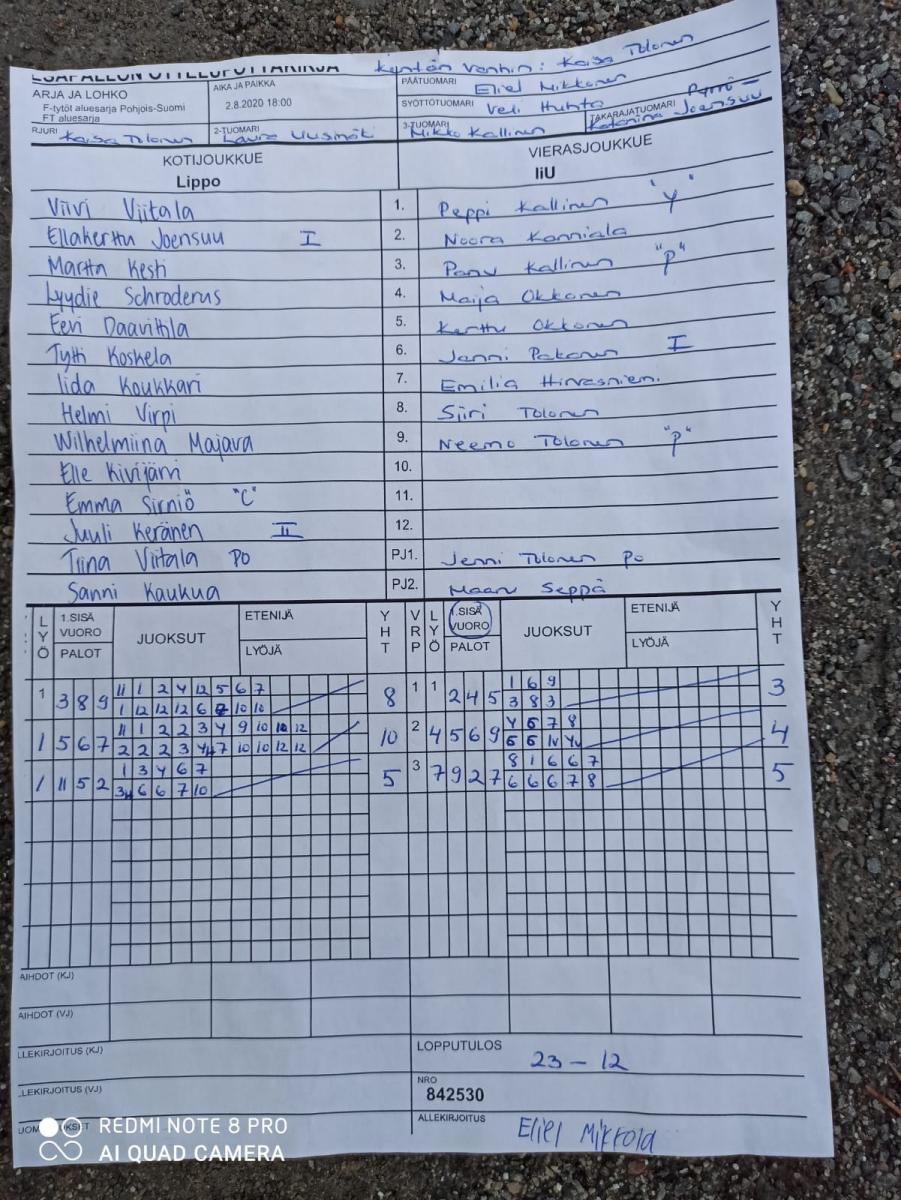 Kentän vanhin: Kaisa Tolonen
PESÄPALLON OTTELUPÖYTÄKIRJA
SARJA JA LOHKO
F-tytöt aluesarja Pohjois-Suomi
FT aluesarja
AIKA JA PAIKKA
2.8.2020 18:00
PÄÄTUOMARI Eliel Mikkonen
SYÖTTÖTUOMARI Veli Huhta
KIRJURI Kaisa Tolonen
2-TUOMARI
3-TUOMARI Mikko Kallinen
TAKARAJATUOMARI Joensuu
KOTIJOUKKUE VIERASJOUKKUE
Lippo IiU
Viivi Viitala 1. Peppi Kallinen "Y"
Ellakerttu Joensuu I 2. Noora Kanniala
Martta Kesti 3. Kallinen "P"
Lyydie Schroderus 4. Maija Okkonen
Eevi Daavittila 5. Kerttu Okkonen
Tytti Koskela 6. Jenni Pakanen I
Iida Koukkari 7. Emilia Hirvasniemi
Helmi Virpi 8. Siiri Tolonen
Wilhelmiina Majava 9. Neemo Tolonen "P"
Elle Kivijärvi 10.
Emma Sirniö "C" 11.
Juuli Keränen II 12.
Tiina Viitala PO PJ1. Jenni Tolonen Po
Sanni Kaukua PJ2. Seppä
LYÖ 1.SISÄ VUORO PALOT JUOKSUT ETENIJÄ LYÖJÄ YHT VRP LYÖ 1.SISÄ VUORO PALOT JUOKSUT ETENIJÄ LYÖJÄ YHT
1 3 8 9 11 1 2 4 12 5 6 7 8 1 1 2 4 5 1 6 9 3
1 12 12 12 6 7 10 10 3 8 3
1 5 6 7 11 1 2 2 3 4 9 10 10 12 10 2 4 5 6 9 4 5 7 8 4
2 2 2 3 4 7 10 10 12 12
1 11 5 2 1 3 4 6 7 5 3 7 9 2 7 8 1 6 6 7 5
3 6 6 7 10 6 6 6 7 8
AIHDOT (KJ)
AIHDOT (VJ)
LLEKIRJOITUS (KJ) LOPPUTULOS 23 - 12
LLEKIRJOITUS (VJ) NRO
842530
ALLEKIRJOITUS Eliel
REDMI NOTE 8 PRO
AI QUAD CAMERA